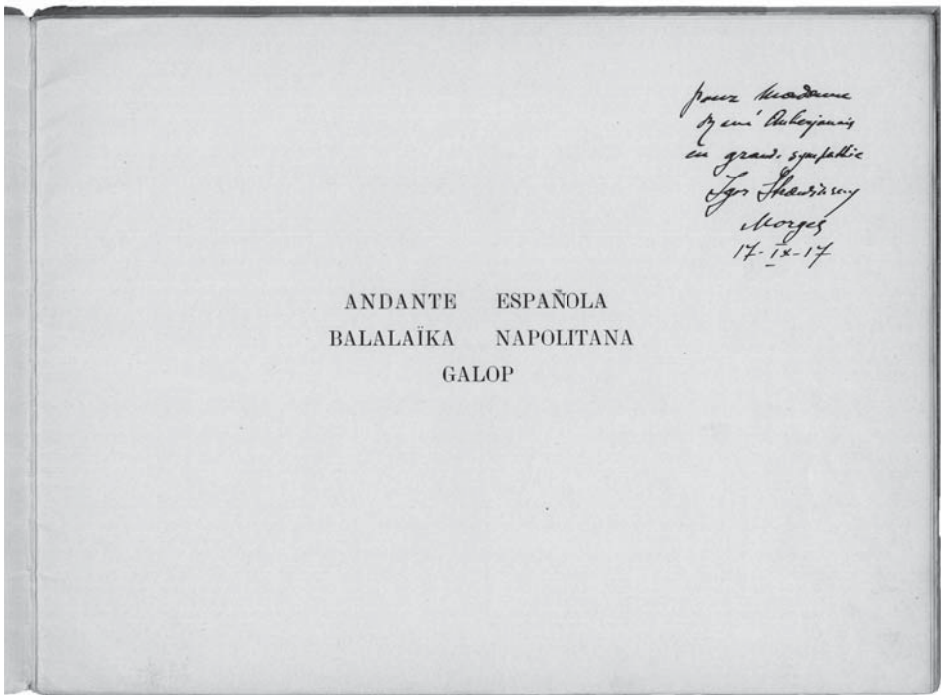 pour Madame
René Auberjonois
en grande sympathie
Igor Strawinsky
Morges
17-IX-17
ANDANTE ESPAÑOLA
BALALAÏKA NAPOLITANA
GALOP